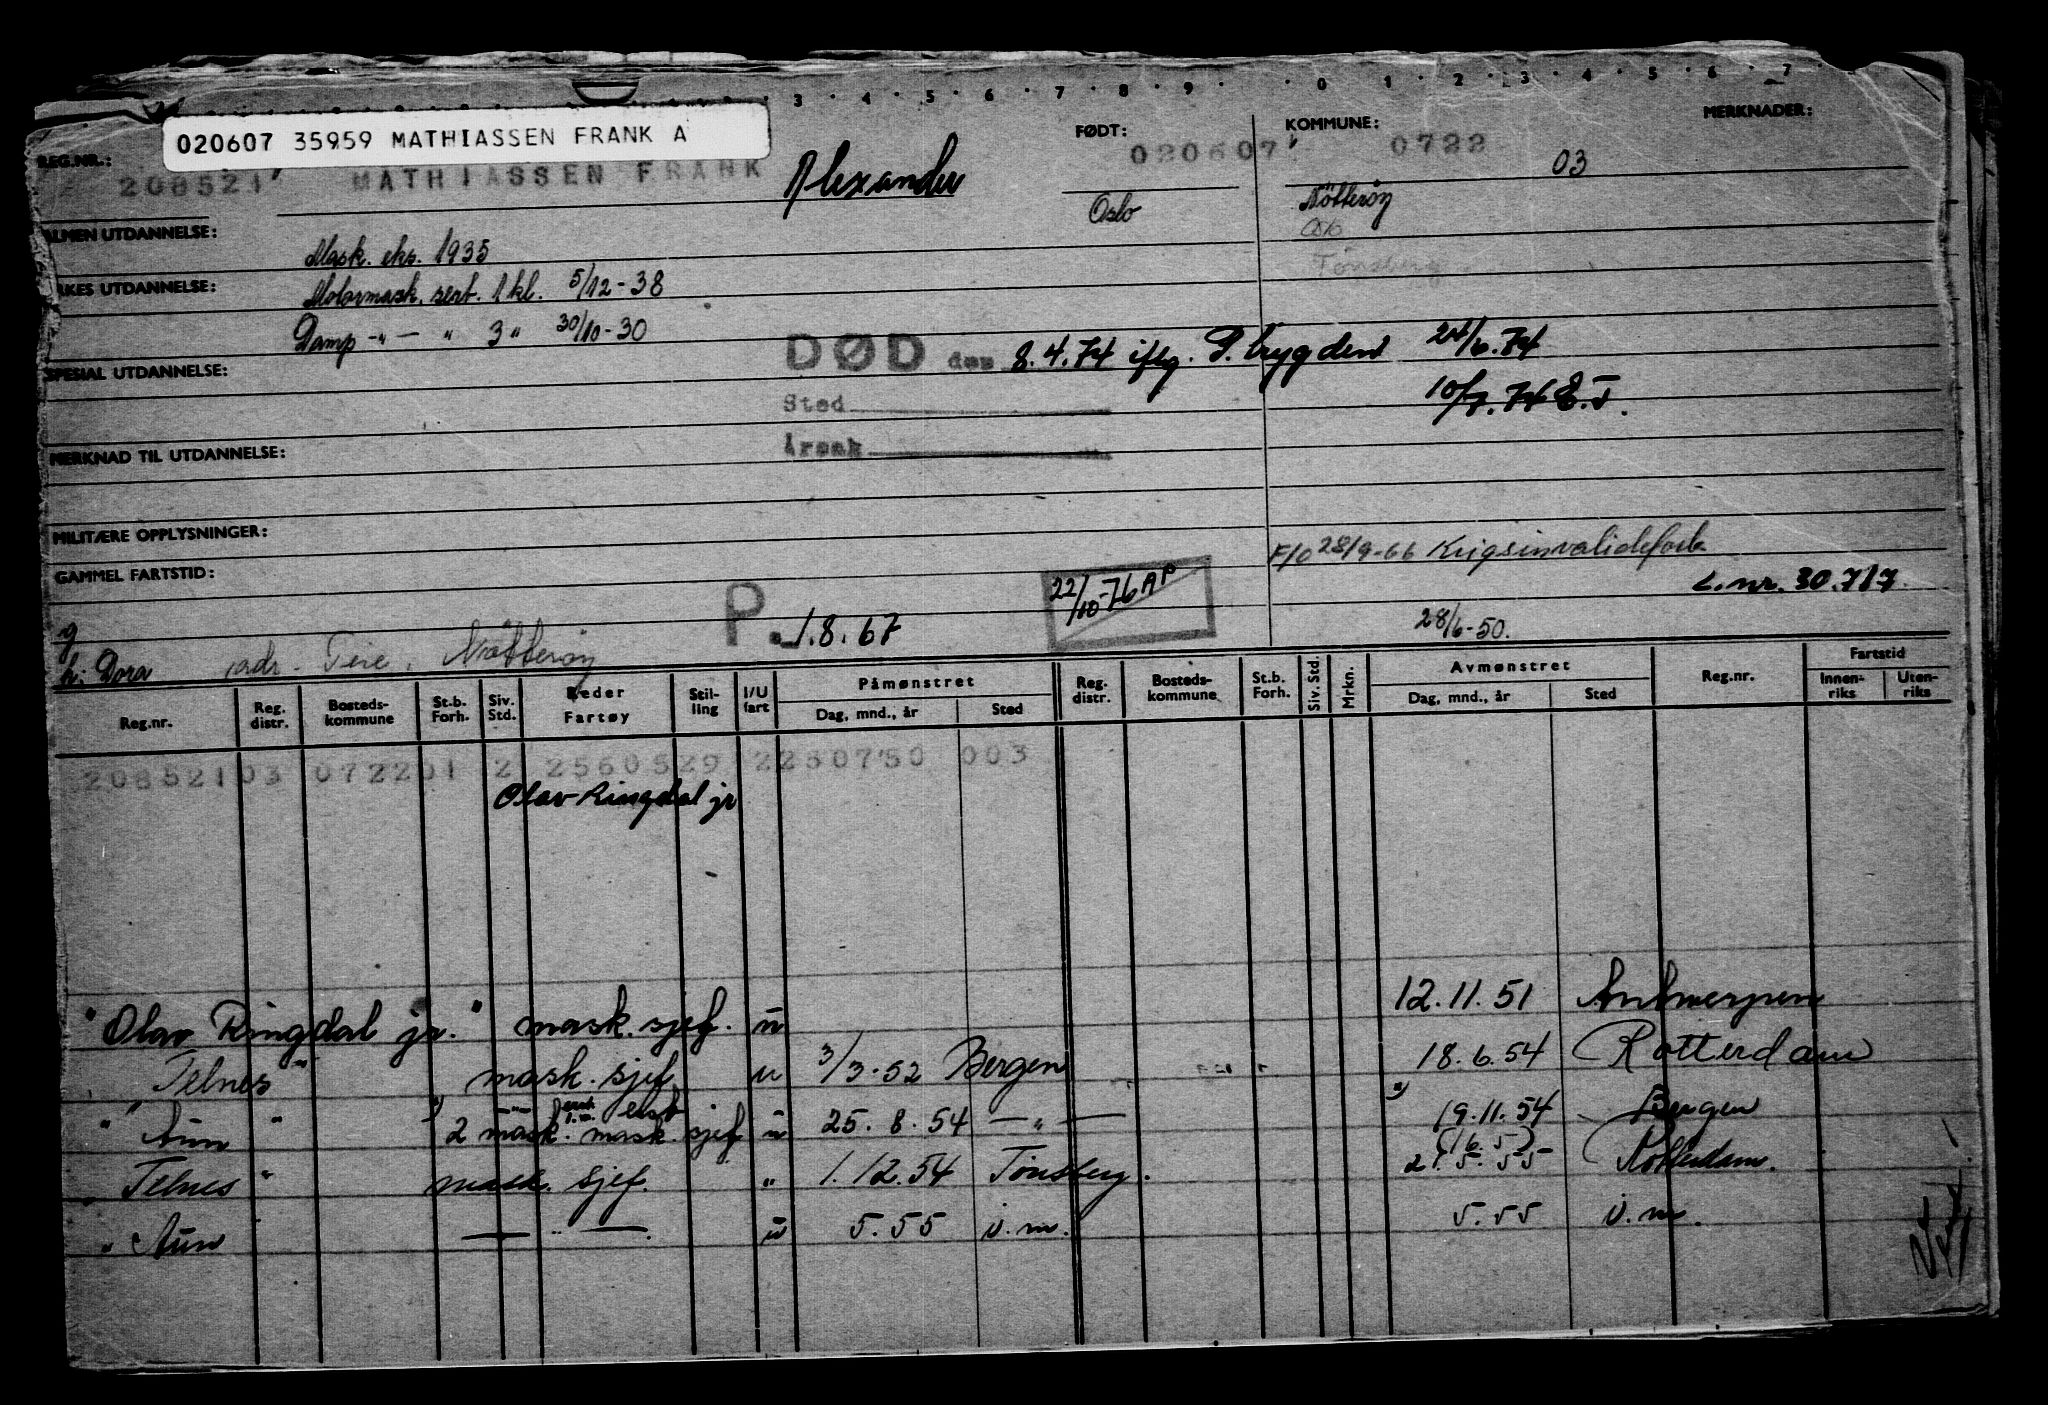 3 . 4 . 5 . 6 . 7 . 8 . 9 . . 0 . 1 . 2 . 3 . 4 . 5 . 6 . 7
020607 35959 MATHIASSEN FRANK A
FØDT: KOMMUNE: MERKNADER:
REG.NR.: 208521 MATHIASSEN FRANK Alexander 020607 0722 03
Oslo Nötteröy
Oslo
Tønsberg
ALMEN UTDANNELSE: Mask. eks. 1935
RKES UTDANNELSE: Motormask. sert. 1 kl. 5/12-38
Damp -"- " 3 " 30/10-30
DØD den 8.4.74 iflg. P. trygden 24/6.74
SPESIAL UTDANNELSE:
Sted 10/7.74 E.T.
MERKNAD TIL UTDANNELSE: Årsak
MILITÆRE OPPLYSNINGER:
F/O 28/9-66 Krigsinvalideforb.
GAMMEL FARTSTID: L.nr. 30.717
P. 1.8.67 22/10-76 AP 28/6-50.
g
h: Dora adr. Teie, Nötteröy
Reg.nr. Reg. distr. Bosteds- kommune St.b. Forh. Siv. Std. Reder Fartøy Stil- ling I/U fart Påmønstret Dag, mnd., år Sted Reg. distr. Bosteds- kommune St.b. Forh. Siv. Std. Mrkn. Avmønstret Dag, mnd., år Sted Reg.nr. Fartstid Innen- riks Uten- riks
208521 03 0722 01 2 2560529 2280750 003
Olav Ringdal jr
"Olav Ringdal jr." mask. sjef. u 12.11.51 Antwerpen
"Telnes" mask. sjef. u 3/3-52 Bergen 18.6.54 Rotterdam
"Aun" 2 mask. mask. sjef u 25.8.54 -"- 19.11.54 Bergen
(16.5)
"Telnes" mask. sjef. " 1.12.54 Tönsberg. 21.5.55 Rotterdam.
"Aun -"- u 5.55 i.m. 5.55 i.m.